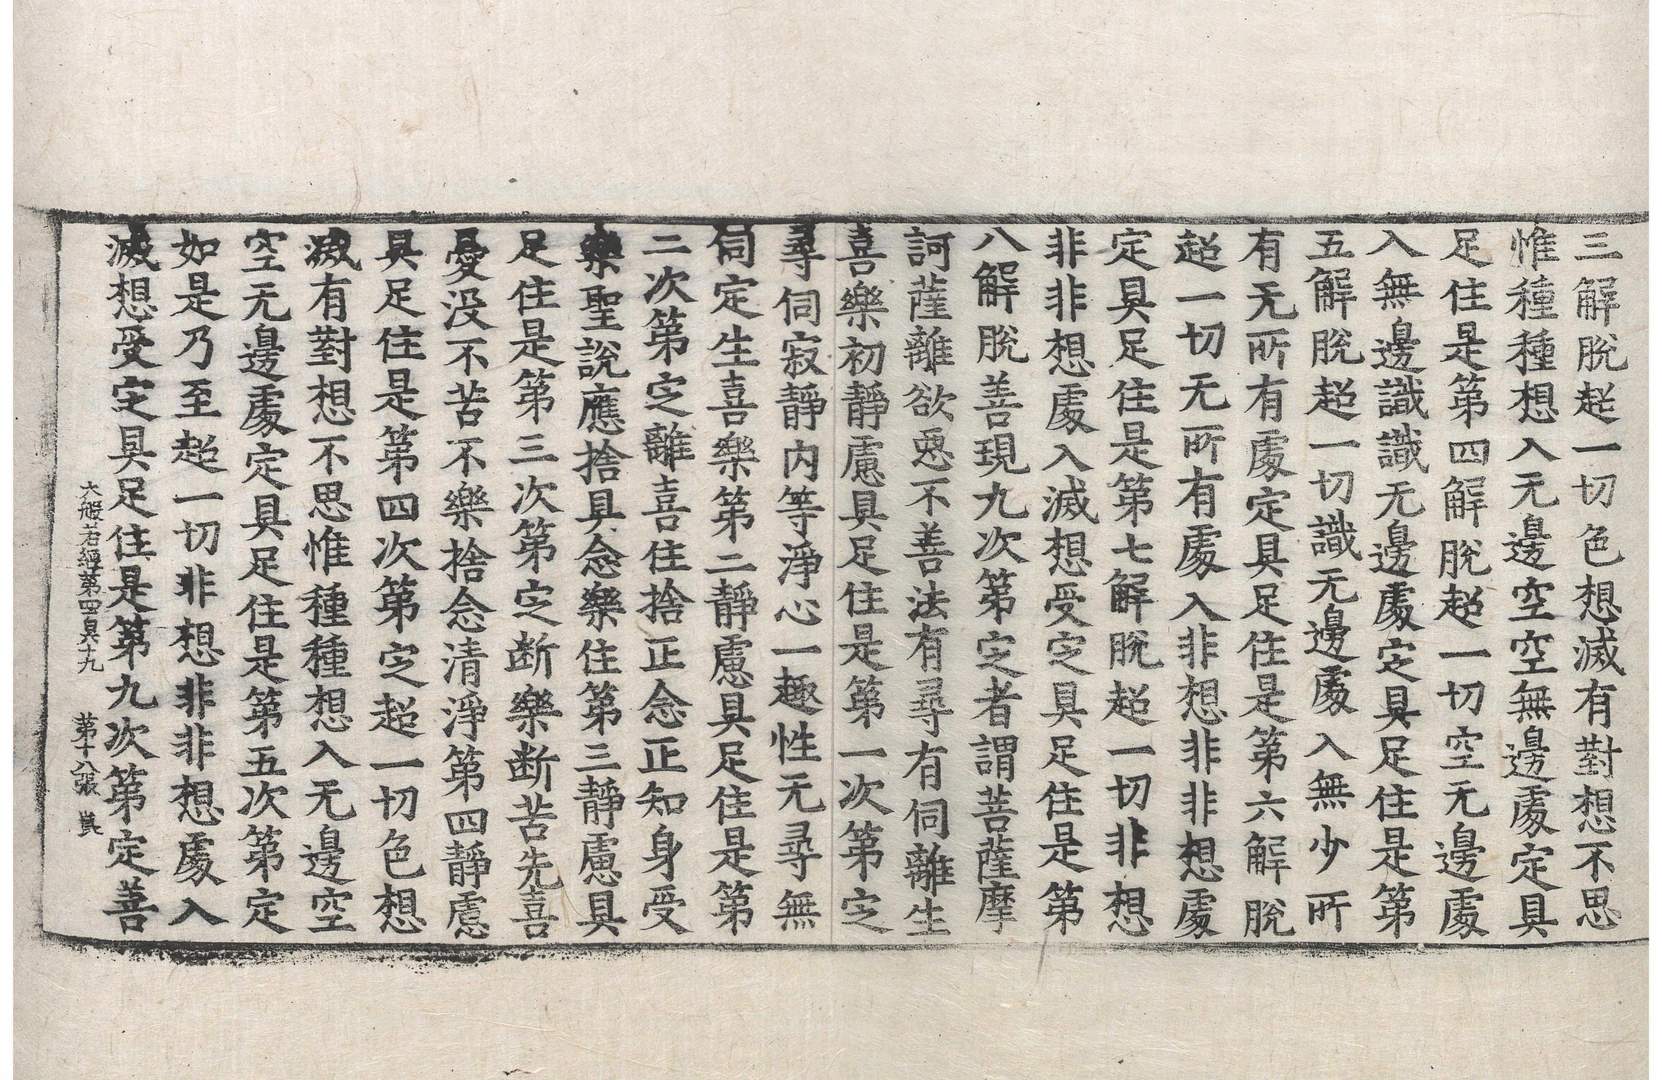 三解脫超一切色想滅有對想不思
惟種種想入无邊空空無邊處定具
足住是第四解脫超一切空无邊處
入無邊識識无邊處定具足住是第
五解脫超一切識无邊處入無少所
有无所有處定具足住是第六解脫
超一切无所有處入非想非非想處
定具足住是第七解脫超一切非想
非非想處入滅想受定具足住是第
八解脫善現九次第定者謂菩薩摩
訶薩離欲惡不善法有尋有伺離生
喜樂初靜慮具足住是第一次第定
尋伺寂靜內等淨心一趣性无尋無
伺定生喜樂第二靜慮具足住是第
二次第定離喜住捨正念正知身受
樂聖說應捨具念樂住第三靜慮具
足住是第三次第定斷樂斷苦先喜
憂沒不苦不樂捨念清淨第四靜慮
具足住是第四次第定超一切色想
滅有對想不思惟種種想入无邊空
空无邊處定具足住是第五次第定
如是乃至超一切非想非非想處入
滅想受定具足住是第九次第定善
大般若經第四百十九 第十八張